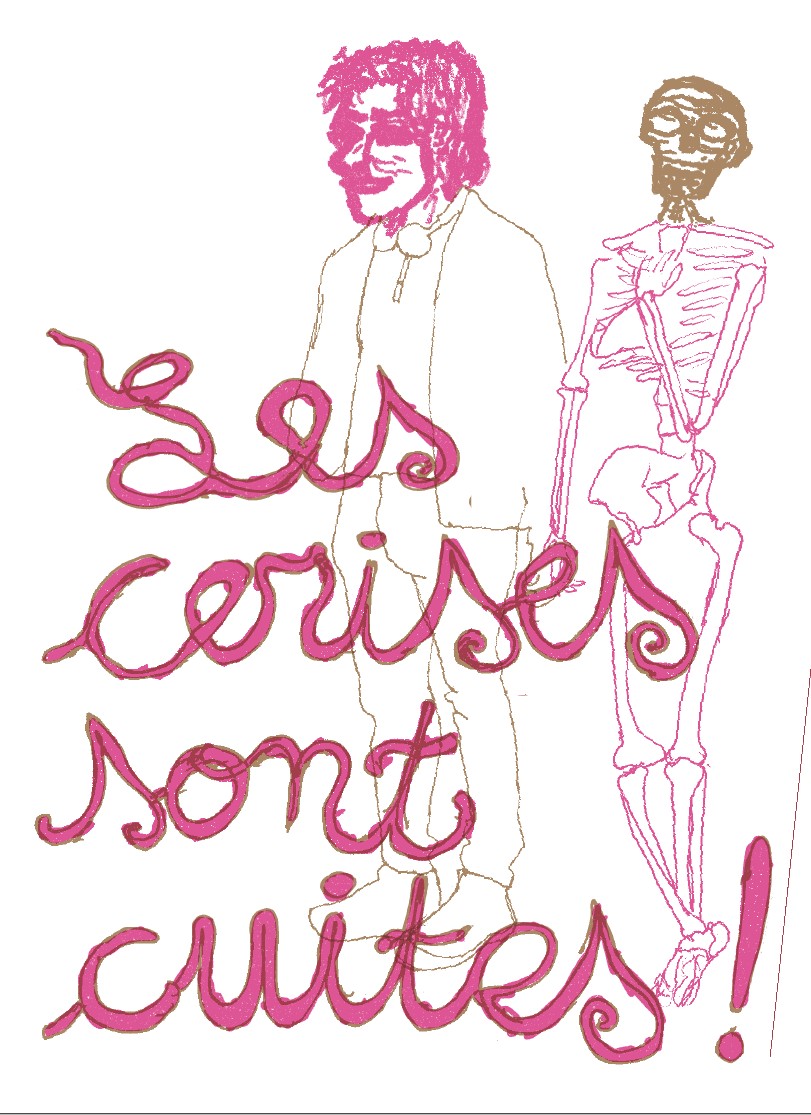 Les
cerises
sont
cuites!